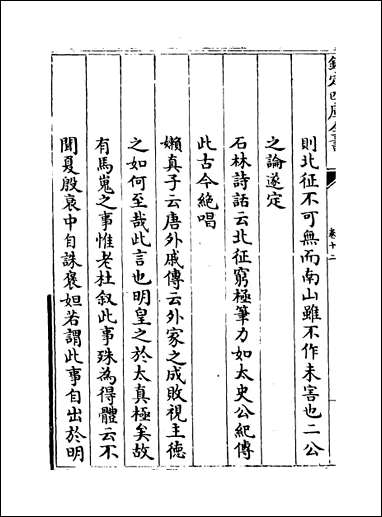 欽定四庫全書
卷十二
則北征不可無而南山雖不作未害也二公
之論遂定
石林詩話云北征窮極筆力如太史公紀傳
此古今絶唱
嬾真子云唐外戚傳云外家之成敗視主德
之如何至哉此言也明皇之於太真極矣故
有馬嵬之事惟老杜叙此事殊為得體云不
聞夏殷衰中自誅褒妲若謂此事自出於明